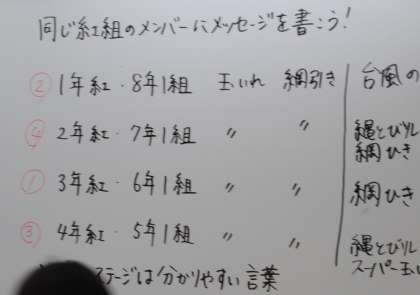 同じ紅組のメンバーにメッセージを書こう!
② 1年紅・8年1組 玉いれ 綱引き 台風の
④ 2年紅・7年1組 〃 〃 縄とびリレ
綱ひき
① 3年紅・6年1組 〃 〃 綱ひき
③ 4年紅・5年1組 〃 〃 縄とびリレ
スーパー玉い
ステージは分かりやすい言葉